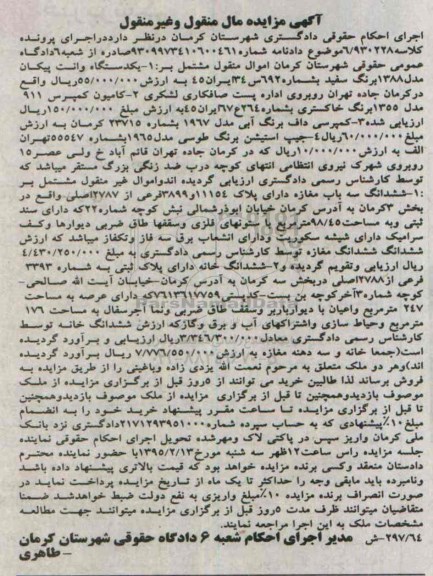 آگهی مزایده مال منقول وغیرمنقول
اجرای احکام حقوقی دادگستری شهرستان کرمان درنظر دارددراجرای پرونده
کلاسه۶/۹۳۰۲۲۸موضوع دادنامه شماره۹۳۰۹۹۷۳۴۱۰۶۰۰۴۶۱صادره از شعبه۶دادگاه
عمومی حقوقی شهرستان کرمان اموال منقول مشتمل بر:۱-یکدستگاه وانت پیکان
مدل۱۳۸۸برنگ سفید بشماره۶۹۲س۳۴ایران۴۵ به ارزش۵۵/۰۰۰/۰۰۰ریال واقع
درکرمان جاده تهران روبروی اداره پست صافکاری لشکری ۲-کامیون کمپرس ۹۱۱
مدل ۱۳۵۵برنگ خاکستری بشماره۲۶۴ع۶۷ایران۴۵به ارزش مبلغ ۱۵۰/۰۰۰/۰۰۰ریال
ارزیابی شده۳-کمپرسی داف برنگ آبی مدل ۱۹۶۷ بشماره ۲۳۷۱۵ کرمان به ارزش
مبلغ ۶۰/۰۰۰/۰۰۰ریال۴-جیپ استیشن برنگ طوسی مدل۱۹۶۵بشماره ۵۵۵۴۷تهران
الف به ارزش ۱۰/۰۰۰/۰۰۰ریال که در کرمان جاده تهران قائم آباد خ ولی عصر۱۵
روبروی شهرک نیروی انتظامی انتهای کوچه درب ضد زنگی بزرگ مستقر میباشد که
توسط کارشناس رسمی دادگستری ارزیابی گردیده اندواموال غیر منقول مشتمل بر
:۱-ششدانگ سه باب مغازه دارای پلاک ۱۱۱۵۴و۳۸۹۹فرعی از ۲۷۸۷اصلی واقع در
بخش ۳کرمان به آدرس کرمان خیابان ابوذرشمالی نبش کوچه شماره۲۲که دارای سند
ثبتی وبه مساحت۹۸/۴۵مترمربع با ستونهای فلزی وسقفها طاق ضربی دیوارها وکف
سرامیک دارای شیشه سکوریت ودارای انشعاب برق سه فاز وتکفاز میباشد که ارزش
ششدانگ ششدانگ مغازه توسط کارشناس رسمی دادگستری به مبلغ ۴/۴۳۰/۲۵۰/۰۰۰
ریال ارزیابی وتقویم گردیده و۲-ششدانگ خانه دارای پلاک ثبتی به شماره ۳۳۹۳
فرعی از۲۷۸۸اصلی دربخش سه کرمان به آدرس کرمان-خیابان آیت الله صالحی-
کوچه شماره۳آخرکوچه بن بست-کدپستی۷۶۱۱۳۶۱۷۷۵۹که دارای عرصه به مساحت
۲۴۷ مترمربع واعیان با دیوارباربر وسقف طاق ضربی ونما آجرسفال به مساحت ۱۷۶
مترمربع وحیاط سازی واشتراکهای آب و برق وگازکه ارزش ششدانگ خانه توسط
کارشناس رسمی دادگستری معادل ۳/۳۴۶/۳۰۰/۰۰۰ریال ارزیابی و برآورد گردیده
است(جمعا خانه و سه دهنه مغازه به ارزش ۷/۷۷۶/۵۵۰/۰۰۰ ریال برآورد گردیده
اند)وهر دو ملک متعلق به مرحوم نعمت الله یزدی زاده وباغینی را از طریق مزایده به
فروش برساند لذا طالبین خرید می توانند از ۵روز قبل از برگزاری مزایده از ملک
موصوف بازدیدوهمچنین تا قبل از برگزاری مزایده از ملک موصوف بازدیدوهمچنین
تا قبل از برگزاری مزایده تا ساعت مقرر پیشنهاد خرید خود را به انضمام
مبلغ۱۰٪پیشنهادی که به حساب سپرده شماره۲۱۷۱۲۹۳۹۵۱۰۰۰دادگستری نزد بانک
ملی کرمان واریز سپس در پاکتی لاک ومهرشده تحویل اجرای احکام حقوقی نمایند
جلسه مزایده راس ساعت۱۲ظهر سه شنبه مورخ۱۳۹۵/۲/۱۳باحضور نماینده محترم
دادستان منعقد وکسی برنده مزایده خواهد بود که قیمت بالاتری پیشنهاد داده باشد
ونامبرده باید مابقی وجه را حداکثر تا یک ماه از تاریخ مزایده پرداخت نماید در
صورت انصراف برنده مزایده ۱۰٪مبلغ واریزی به نفع دولت ضبط خواهدشد ضمنا
متقاضیان میتوانند ظرف مدت ۵روز قبل از برگزاری مزایده میتوانند جهت مطالعه
مشخصات ملک به این اجرا مراجعه نمایند.
۲۹۷/۶۴-ش مدیر اجرای احکام شعبه ۶ دادگاه حقوقی شهرستان کرمان
-طاهری